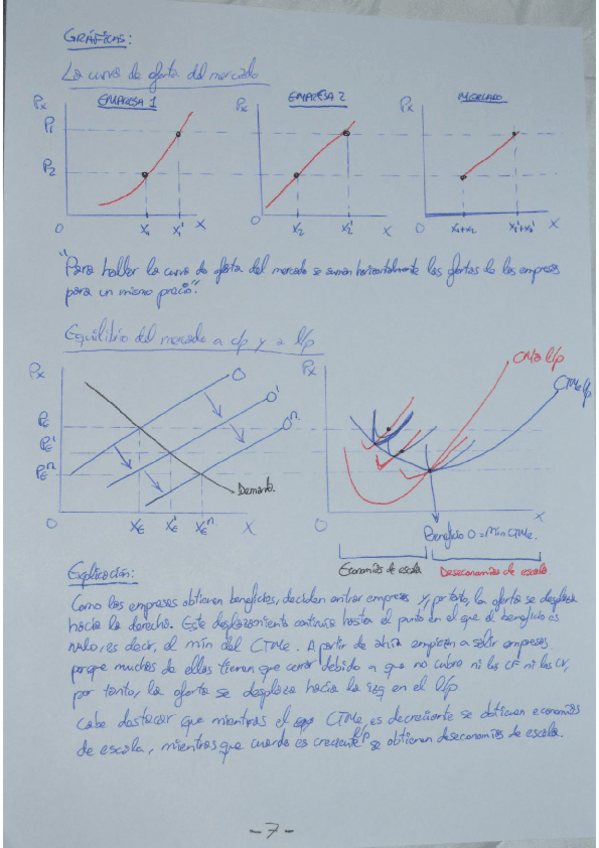 GRÁFICAS:
La curva de oferta del mercado
Px EMPRESA 1 Px EMPRESA 2 Px MERCADO
P1
P2
0 X1 X1' X 0 X2 X2' X 0 X1+X2 X2'+X1' X
"Para hallar la curva de oferta del mercado se suman horizontalmente las ofertas de las empresas
para un mismo precio".
Equilibrio del mercado a c/p y a l/p
Px O O' Oⁿ Px CMa l/p CTMe l/p
PE
PE'
PEⁿ
Demanda
0 XE XE' XEⁿ X 0 X
Beneficio 0 = Mín CTMe.
Economías de escala Deseconomías de escala
Explicación:
Como las empresas obtienen beneficios, deciden entrar empresas y, por tanto, la oferta se desplaza
hacia la derecha. Este desplazamiento continua hasta el punto en el que el beneficio es
nulo, es decir, el mín del CTMe. A partir de ahía empiezan a salir empresas
porque muchas de ellas tienen que cerrar debido a que no cubre ni los CF ni los CV,
por tanto, la oferta se desplaza hacia la izq en el l/p
Cabe destacar que mientras el CTMe, es decreciente se obtienen economías
de escala, mientras que cuando es creciente l/p se obtienen deseconomías de escala.
-7-